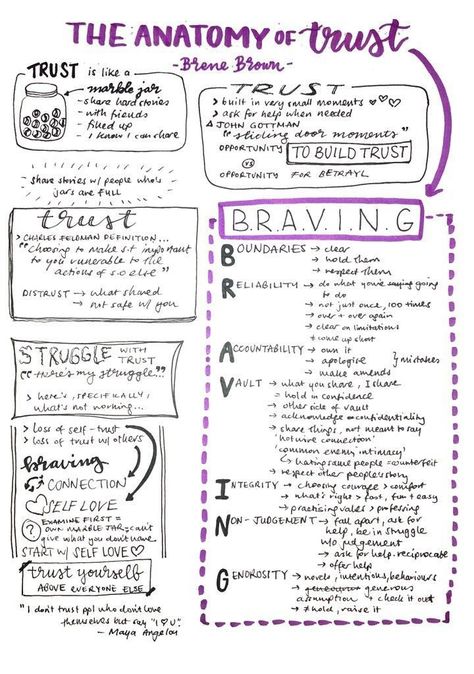 THE ANATOMY OF trust
- Brene Brown -
TRUST is like a
marble jar
- share hard stories
- with friends
- filled up
- I know I can share
share stories w/ people who's
jars are FULL
TRUST
> built in very small moments ♡♡♡
> ask for help when needed
JOHN GOTTMAN
"sliding door moments"
OPPORTUNITY TO BUILD TRUST
VS
OPPORTUNITY FOR BETRAYL
trust
> CHARLES FELDMAN DEFINITION...
"Choosing to make s.t important
to you vunerable to the
actions of s.o else"
DISTRUST → what shared
→ not safe w/ you
STRUGGLE WITH TRUST
"there's my struggle..."
> here's, SPECIFICALLY,
what's not working...
> loss of self-trust
> loss of trust w/ others
braving
CONNECTION
SELF LOVE
? EXAMINE FIRST =
OWN MARBLE JAR = can't
give what you don't have
START W/ SELF LOVE ♡
trust yourself
ABOVE EVERYONE ELSE
"I don't trust ppl who don't love
themselves but say "I ♡ U".
- Maya Angelou
B.R.A.V.I.N.G
BOUNDARIES → clear
→ hold them
→ respect them
RELIABILITY → do what you're saying going
to do
→ not just once, 100 times
→ over + over again
→ clear on limitations
+ come up short
ACCOUNTABILITY → own it
→ apologise } mistakes
→ make amends
VAULT → what you share, I share
= hold in confidence
→ other side of vault
→ acknowledge confidentiality
→ share things, not meant to say
'hotwire connection'
'common enemy intimacy'
↳ hating same people = counterfeit
→ respect other people's story
INTEGRITY → choosing courage > comfort
→ what's right > fast, fun + easy
→ practising values > professing
NON-JUDGEMENT → fall apart, ask for
help, be in struggle
w/o judgement
→ ask for help - reciprocate
→ offer help
GENOROSITY → words, intentions, behaviours
→ generous
assumption → check it out
→ ≠ hold, raise it